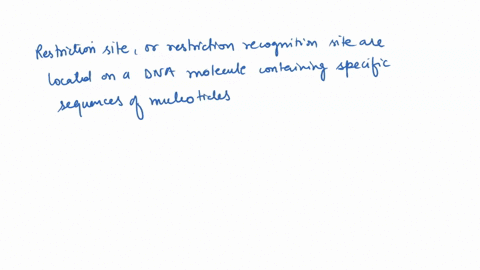 Restriction site, or restriction recognition site are
located on a DNA molecule containing specific
sequences of nucleotides